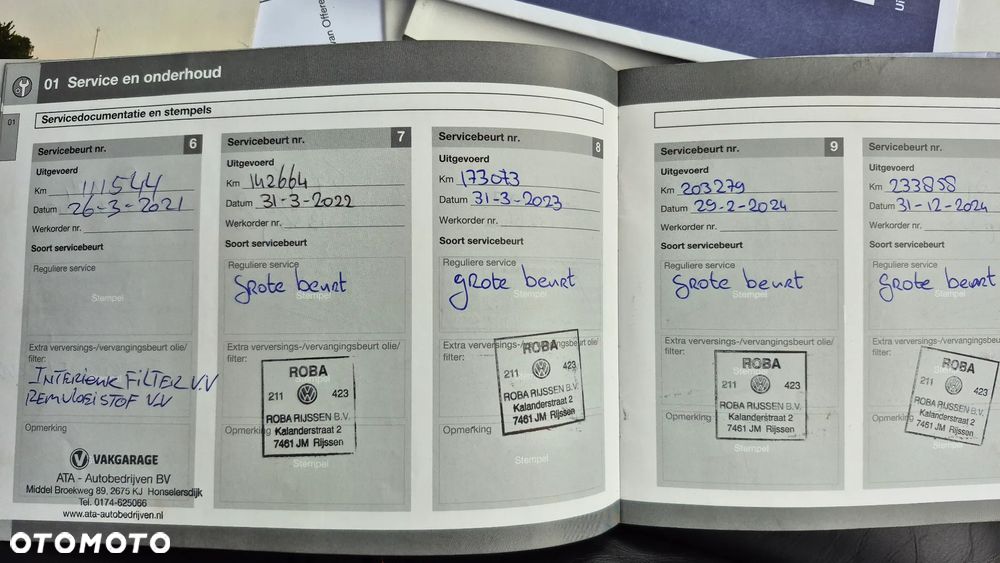 van Offere
01 Service en onderhoud
01
Servicedocumentatie en stempels
Servicebeurt nr. 6
Uitgevoerd
Km 111544
Datum 26-3-2021
Werkorder nr.
Soort servicebeurt
Reguliere service
Stempel
Extra verversings-/vervangingsbeurt olie/
filter:
INTERIEUR FILTER V.V
REMVLOEISTOF V.V
Opmerking
VAKGARAGE
ATA - Autobedrijven BV
Middel Broekweg 89, 2675 KJ Honselersdijk
Tel. 0174-625066
www.ata-autobedrijven.nl
Servicebeurt nr. 7
Uitgevoerd
Km 142664
Datum 31-3-2022
Werkorder nr.
Soort servicebeurt
Reguliere service
grote beurt
Stempel
Extra verversings-/vervangingsbeurt olie/
filter:
ROBA
211 423
ROBA RIJSSEN B.V.
Kalanderstraat 2
7461 JM Rijssen
Opmerking
Stempel
Servicebeurt nr. 8
Uitgevoerd
Km 173073
Datum 31-3-2023
Werkorder nr.
Soort servicebeurt
Reguliere service
grote beurt
Stempel
Extra verversings-/vervangingsbeurt olie/
filter:
ROBA
211 423
ROBA RIJSSEN B.V.
Kalanderstraat 2
7461 JM Rijssen
Opmerking
Stempel
Servicebeurt nr. 9
Uitgevoerd
Km 203279
Datum 29-2-2024
Werkorder nr.
Soort servicebeurt
Reguliere service
grote beurt
Stempel
Extra verversings-/vervangingsbeurt olie/
filter:
ROBA
211 423
ROBA RIJSSEN B.V.
Kalanderstraat 2
7461 JM Rijssen
Opmerking
Stempel
Servicebeurt nr.
Uitgevoerd
Km 233858
Datum 31-12-2024
Werkorder nr.
Soort servicebeurt
Reguliere service
grote beurt
Stempel
Extra verversings-/vervangingsbeurt
filter:
ROBA
211 423
ROBA RIJSSEN B.V.
Kalanderstraat 2
7461 JM Rijssen
Opmerking
Stempel
OTOMOTO